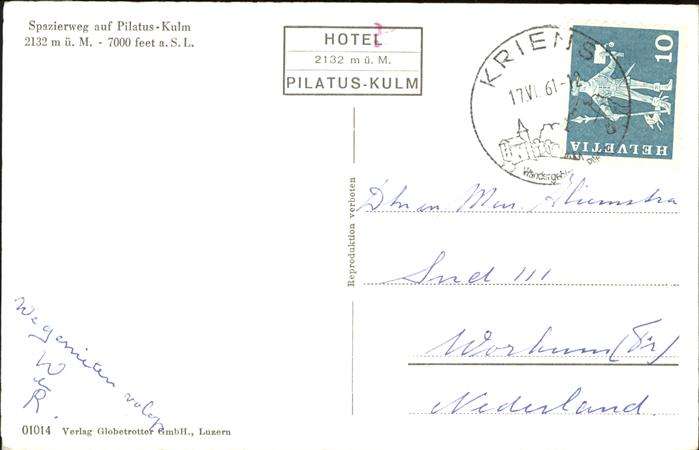 Spazierweg auf Pilatus-Kulm
2132 m ü. M. - 7000 feet a. S. L.
HOTEL
2132 m ü. M.
PILATUS-KULM
KRIENS
17.VI.61-12
10
HELVETIA
Reproduktion verboten
Dhr en Mevr.
Snd III
Workum (Fr)
Nederland.
Wageniten
W
en
R.
01014 Verlag Globetrotter GmbH., Luzern